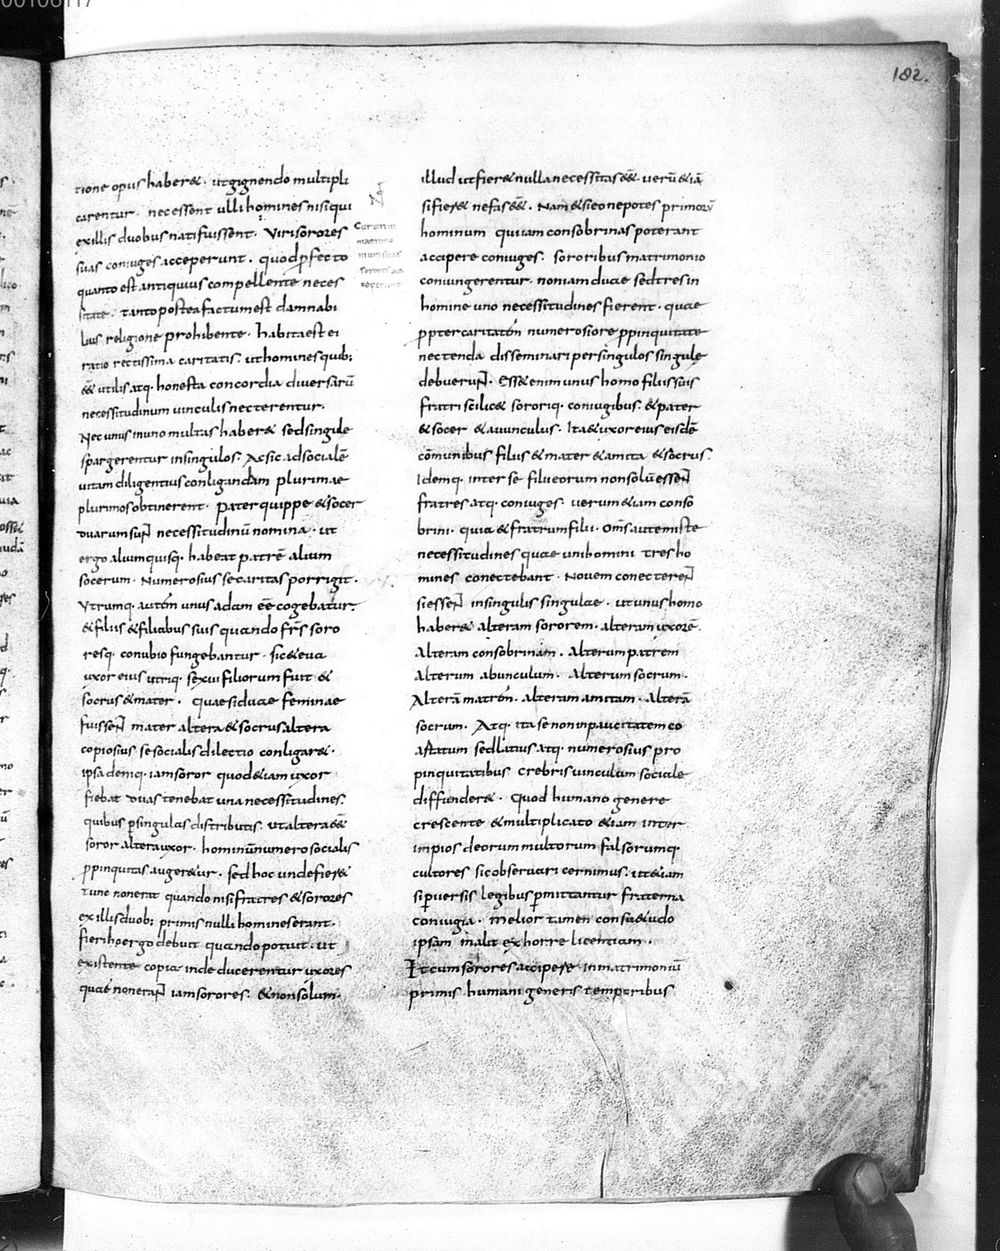 182.
tione opus haber&. ut gignendo multipli
carentur. necessent ulli homines nisi qui
exillis duobus nati fuissent. Viri sorores
suas coniuges acceperunt. quod pfecto
quanto est antiquius compellente neces
sitate. tanto postea factum est damnabi
lius religione prohibente. habita est ei
ratio rectissima caritatis. ut homines quib;
ee& utilis atq. honesta concordia diversarū
necessitudinum uinculis necterentur.
Nec unus in uno multas haber& sed singule
spargerentur in singulos. Ac sic ad socialē
uitam diligentius conligandam plurimae
plurimos obtinerent. pater quippe & socer
duarum sun̄ necessitudinū nomina. ut
ergo alium quisq. habeat patrē alium
socerum. Numerosius se caritas porrigit.
Vtrumq. autem unus adam eē cogebatur.
& filiis & filiabus suis quando frs soro
resq. conubio fungebantur. sic & eua
uxor eius utriq. sexui filiorum fuit &
socrus & mater. quae si duae feminae
fuissen̄ mater altera & socrus altera
copiosius se socialis dilectio conligar&.
ipsa deniq. iam soror quod & iam uxor
fiebat duas tenebat una necessitudines.
quibus p singulas distributis. ut altera ee&
soror altera uxor. hominū numero socialis
ppinquitas auger&ur. sed hoc unde fier&
tunc non erat quando nisi fratres & sorores
exillis duob; primis nulli homines erant.
fieri hoc ergo debuit quando potuit. ut
existente copia inde ducerentur uxores
quae non eran̄ iam sorores. & non solum.
Coram in
matrimo
nium suas
sorores ac
ceperunt
illud ut fier& nulla necessitas ee&. uerū & iā
si fier& nefas ee&. Nam & si eo nepotes primorū
hominum qui iam consobrinas poterant
accipere coniuges. sororibus matrimonio
coniungerentur. non iam duae sed tres in
homine uno necessitudines fierent. quae
ppter caritatem numerosiore ppinquitate
nectenda disseminari per singulos singule
debuerun̄. Ess& enim unus homo filiis suis
fratri scilic& sororiq. coniugibus. & pater
& socer & auunculus. Ita & uxor eius eisdē
cōmunibus filiis & mater & amita & socrus.
Idemq. inter se filii eorum non solū essen̄
fratres atq. coniuges. uerum & iam conso
brini. quia & fratrum filii. Om̄s autem iste
necessitudines quae uni homini tres ho
mines conectebant. Nouem conecteren̄
si essen̄ in singulis singulae. ut unus homo
haber& alteram sororem. alteram uxorē.
Alteram consobrinam. Alterum patrem
alterum abunculum. Alterum socrum.
Alterā matrem. alteram amitam. Alterā
socrum. Atq. ita se non in paucitatem co
aftatum sed latius atq. numerosius pro
pinquitatibus crebris uinculum sociale
diffunder&. Quod humano genere
crescente & multiplicato & iam inter
impios deorum multorum falsorumq.
cultores sic obseruari cernimus. ut & iam
si puersis legibus pmittantur fraterna
coniugia. Melior tamen consu&udo
ipsam malit exhorre licentiam.
Et cum sorores accipere in matrimoniū
primis humani generis temporibus